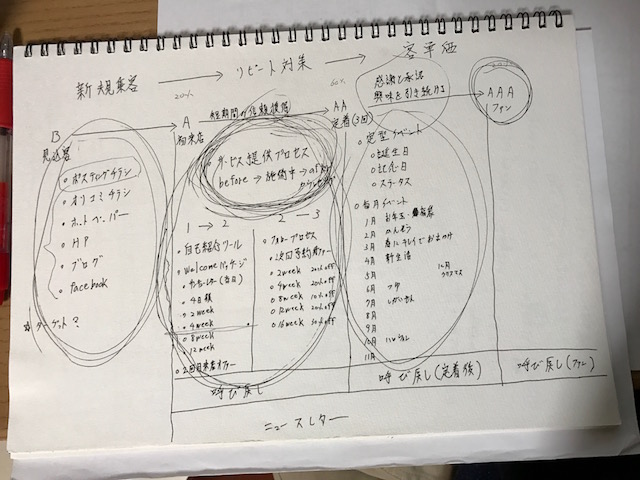 新規集客 → リピート対策 → 客単価
20%
60%
20%
B → A 短期間の信頼獲得 → AA → AAA
見込客
初来店
定着(3回)
ファン
感謝と承認
興味を引き続ける
○ポスティングチラシ
○オリコミチラシ
○ホットペーパー
○HP
○ブログ
○facebook
ターゲット?
サービス提供プロセス
before→施術中→after
カウンセリング
1→2
○自己紹介ツール
○Welcomeパッケージ
○サンキューレター(当日)
○4日後
○2week
○4week
○8week
○12week
○2回目来店オファー
2―3
○フォロープロセス
○2week 20%off
○4week 20%off
○8week 10%off
○12week 20%off
○16week 30%off
○定型イベント
○誕生日
○記念日
○ステータス
○毎月イベント
1月 お年玉
2月
3月 春にキレイでおでかけ
4月 新生活
5月
6月 つゆ
7月
8月
9月
10月 ハロウィン
11月
12月
クリスマス
呼び戻し
呼び戻し(定着後)
呼び戻し(ファン)
ニュースレター